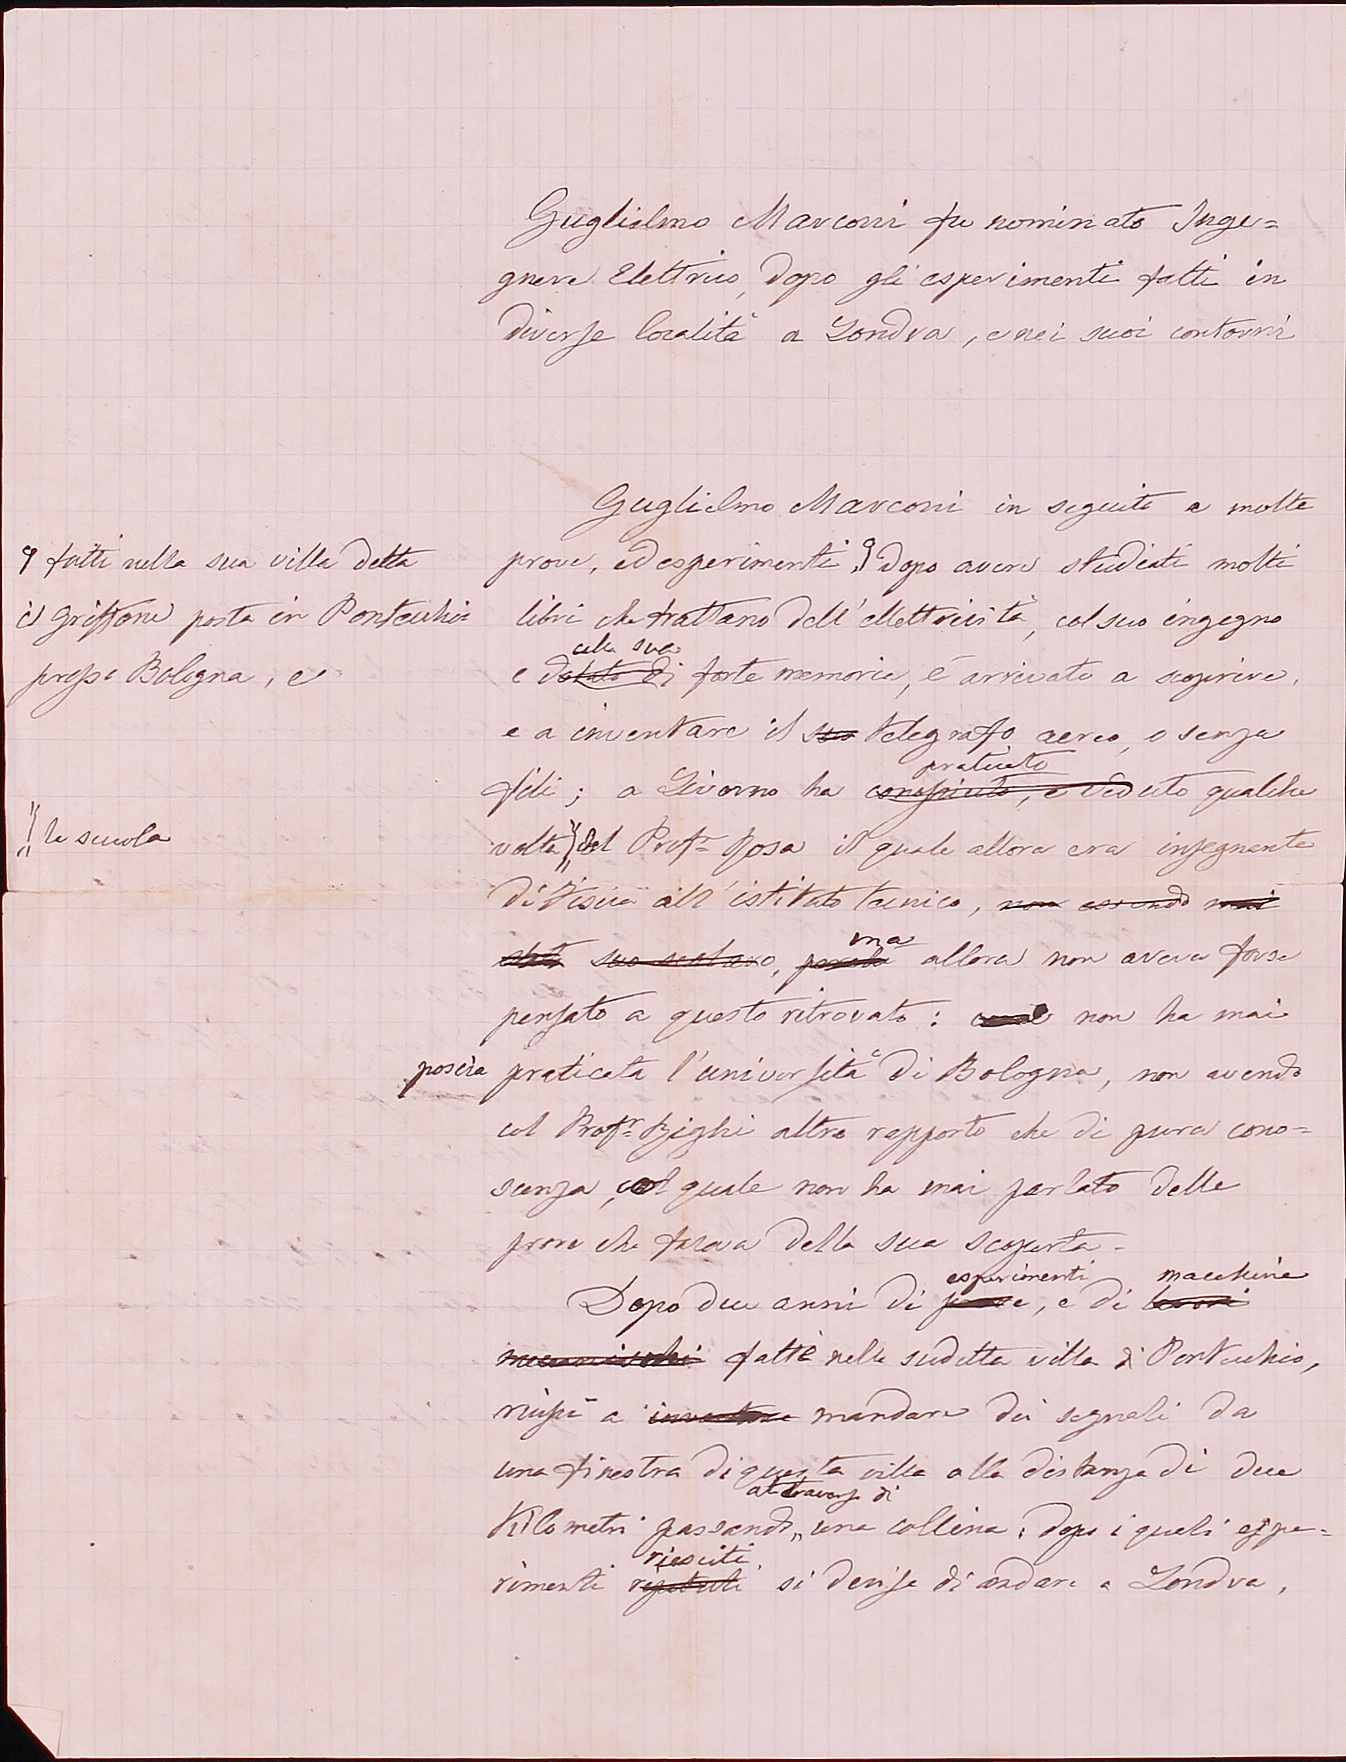 Guglielmo Marconi fu nominato Inge=
gnere Elettrico, dopo gli esperimenti fatti in
diverse località a Londra, e nei suoi contorni
Guglielmo Marconi in seguito a molte
prove, ed esperimenti, dopo avere studiati molti
fatti nella sua villa detta
il Griffone posta in Pontecchio
presso Bologna, e
libri che trattano dell'elettricità, col suo ingegno
alla sua
e dotato di forte memoria, è arrivato a scoprire,
e a inventare il suo telegrafo aereo, o senza
praticato
fili; a Livorno ha conosciuto, e veduto qualche
la scuola
volta del Prof. Rosa il quale allora era insegnante
di Fisica all'istituto tecnico, non essendo mai
stato suo scolaro, perché allora non aveva forse
ma
pensato a questo ritrovato: non ha mai
poscia praticata l'università di Bologna, non avendo
col Profr. Righi altro rapporto che di pura cono=
scenza, col quale non ha mai parlato delle
prove che faceva della sua scoperta.
esperimenti macchine
Dopo due anni di prove, e di lavori
meccanici fatte nella sudetta villa di Pontecchio,
riuscì a inventare mandare dei segnali da
una finestra di questa villa alla distanza di due
attraverso di
Kilometri passando una collina; dopo i quali espe=
riesciti
rimenti ripetuti si decise di andare a Londra,